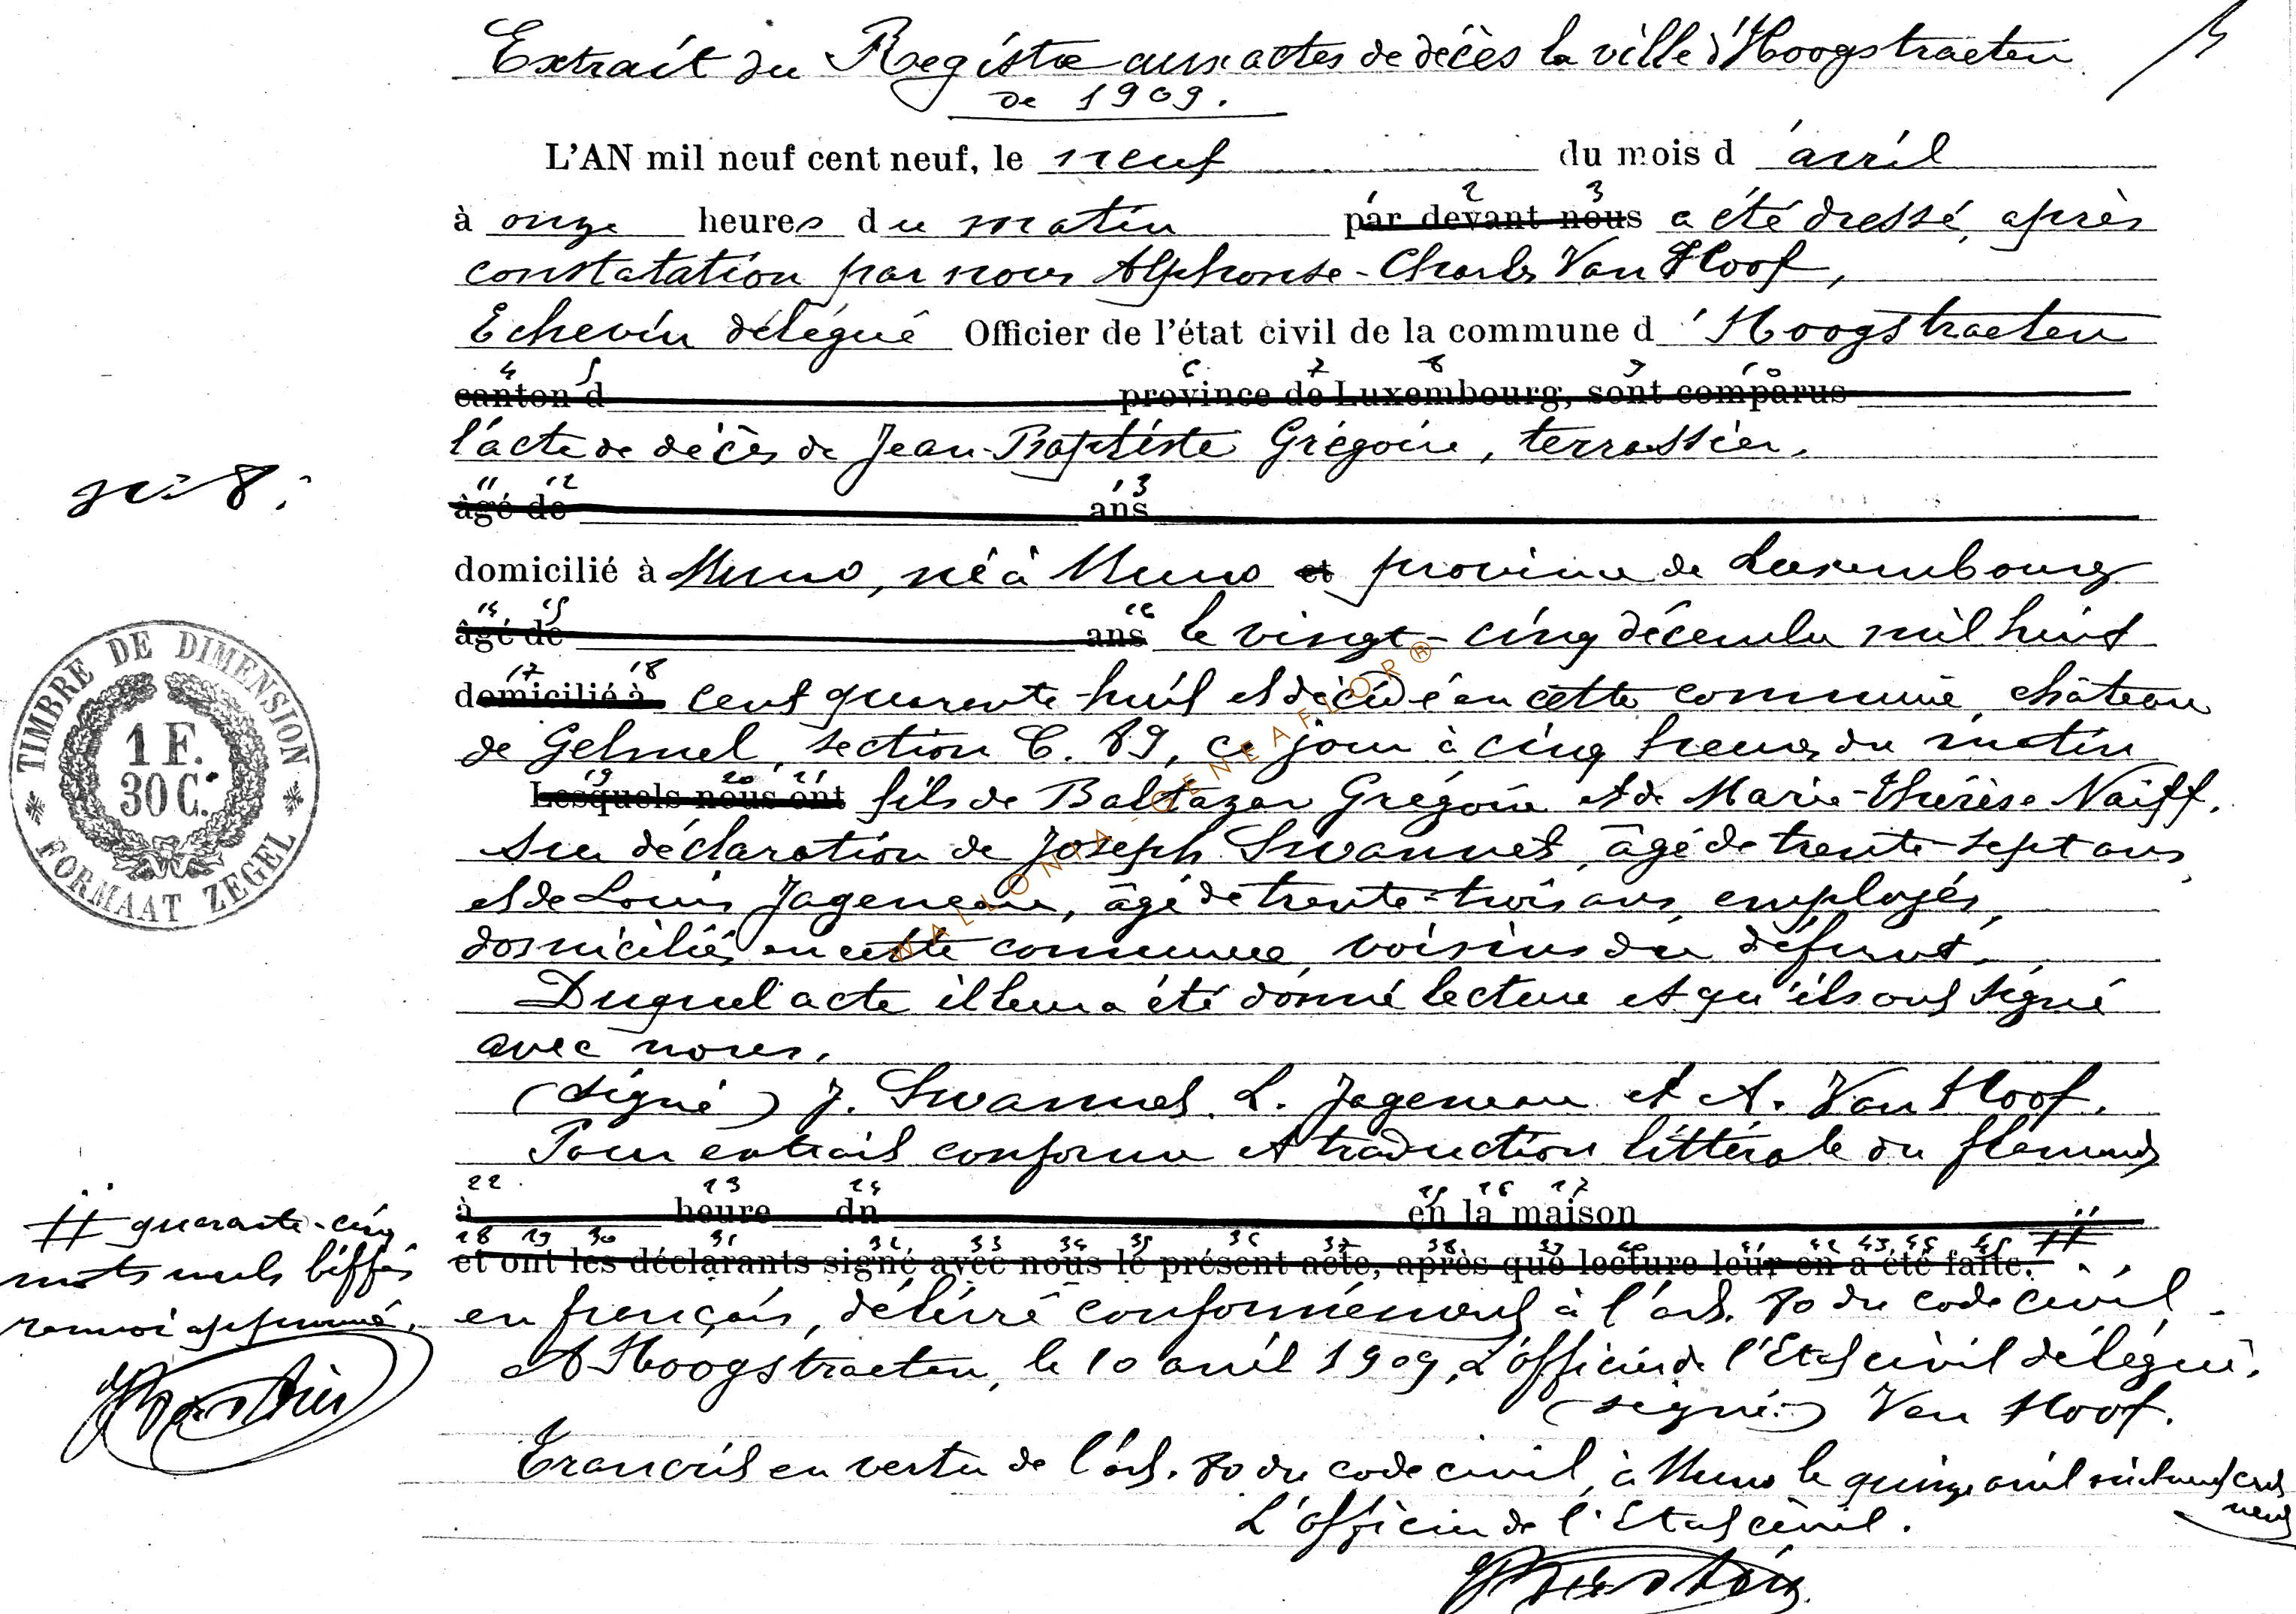 Extrait du Registre aux actes de décès la ville d'Hoogstraeten
de 1909.
L'AN mil neuf cent neuf, le neuf du mois d'avril
à onze heures du matin par devant nous a été dressé, après
constatation par nous Alphonse-Charles Van Hoof,
Echevin délégué Officier de l'état civil de la commune d'Hoogstraeten
canton d province de Luxembourg, sont comparus
l'acte de décès de Jean-Baptiste Grégoire, terrassier,
n° 8.
âgé de ans
domicilié à Muno, né à Muno et province de Luxembourg
âgé de ans le vingt-cinq décembre mil huit
domicilié à cent quarante-huit et décédé en cette commune, château
de Gelmel, section C. 89, ce jour à cinq heures du matin
Lesquels nous ont fils de Baltazar Grégoire et de Marie-Thérèse Naiff.
Sur déclaration de Joseph Swannet, âgé de trente-sept ans,
et de Louis Jageneau, âgé de trente-trois ans, employés,
domiciliés en cette commune, voisins du défunt.
Duquel acte il leur a été donné lecture et qu'ils ont signé
avec nous.
(signé) J. Swannet. L. Jageneau et A. Van Hoof.
Pour extrait conforme et traduction littérale du flamand
à heure du en la maison
et ont les déclarants signé avec nous le présent acte, après que lecture leur en a été faite.
en français, délivré conformément à l'art. 80 du code civil.
A Hoogstraeten, le 10 avril 1909, L'officier de l'Etat civil délégué,
(signé) Van Hoof.
Transcrit en vertu de l'art. 80 du code civil, à Muno le quinze avril mil neuf cent
neuf
L'officier de l'Etat civil.
# quarante-cinq
mots nuls biffés
renvoi approuvé.
TIMBRE DE DIMENSION
1 F.
30 C.
FORMAAT ZEGEL
WALLONIA - GENEAFLOR®